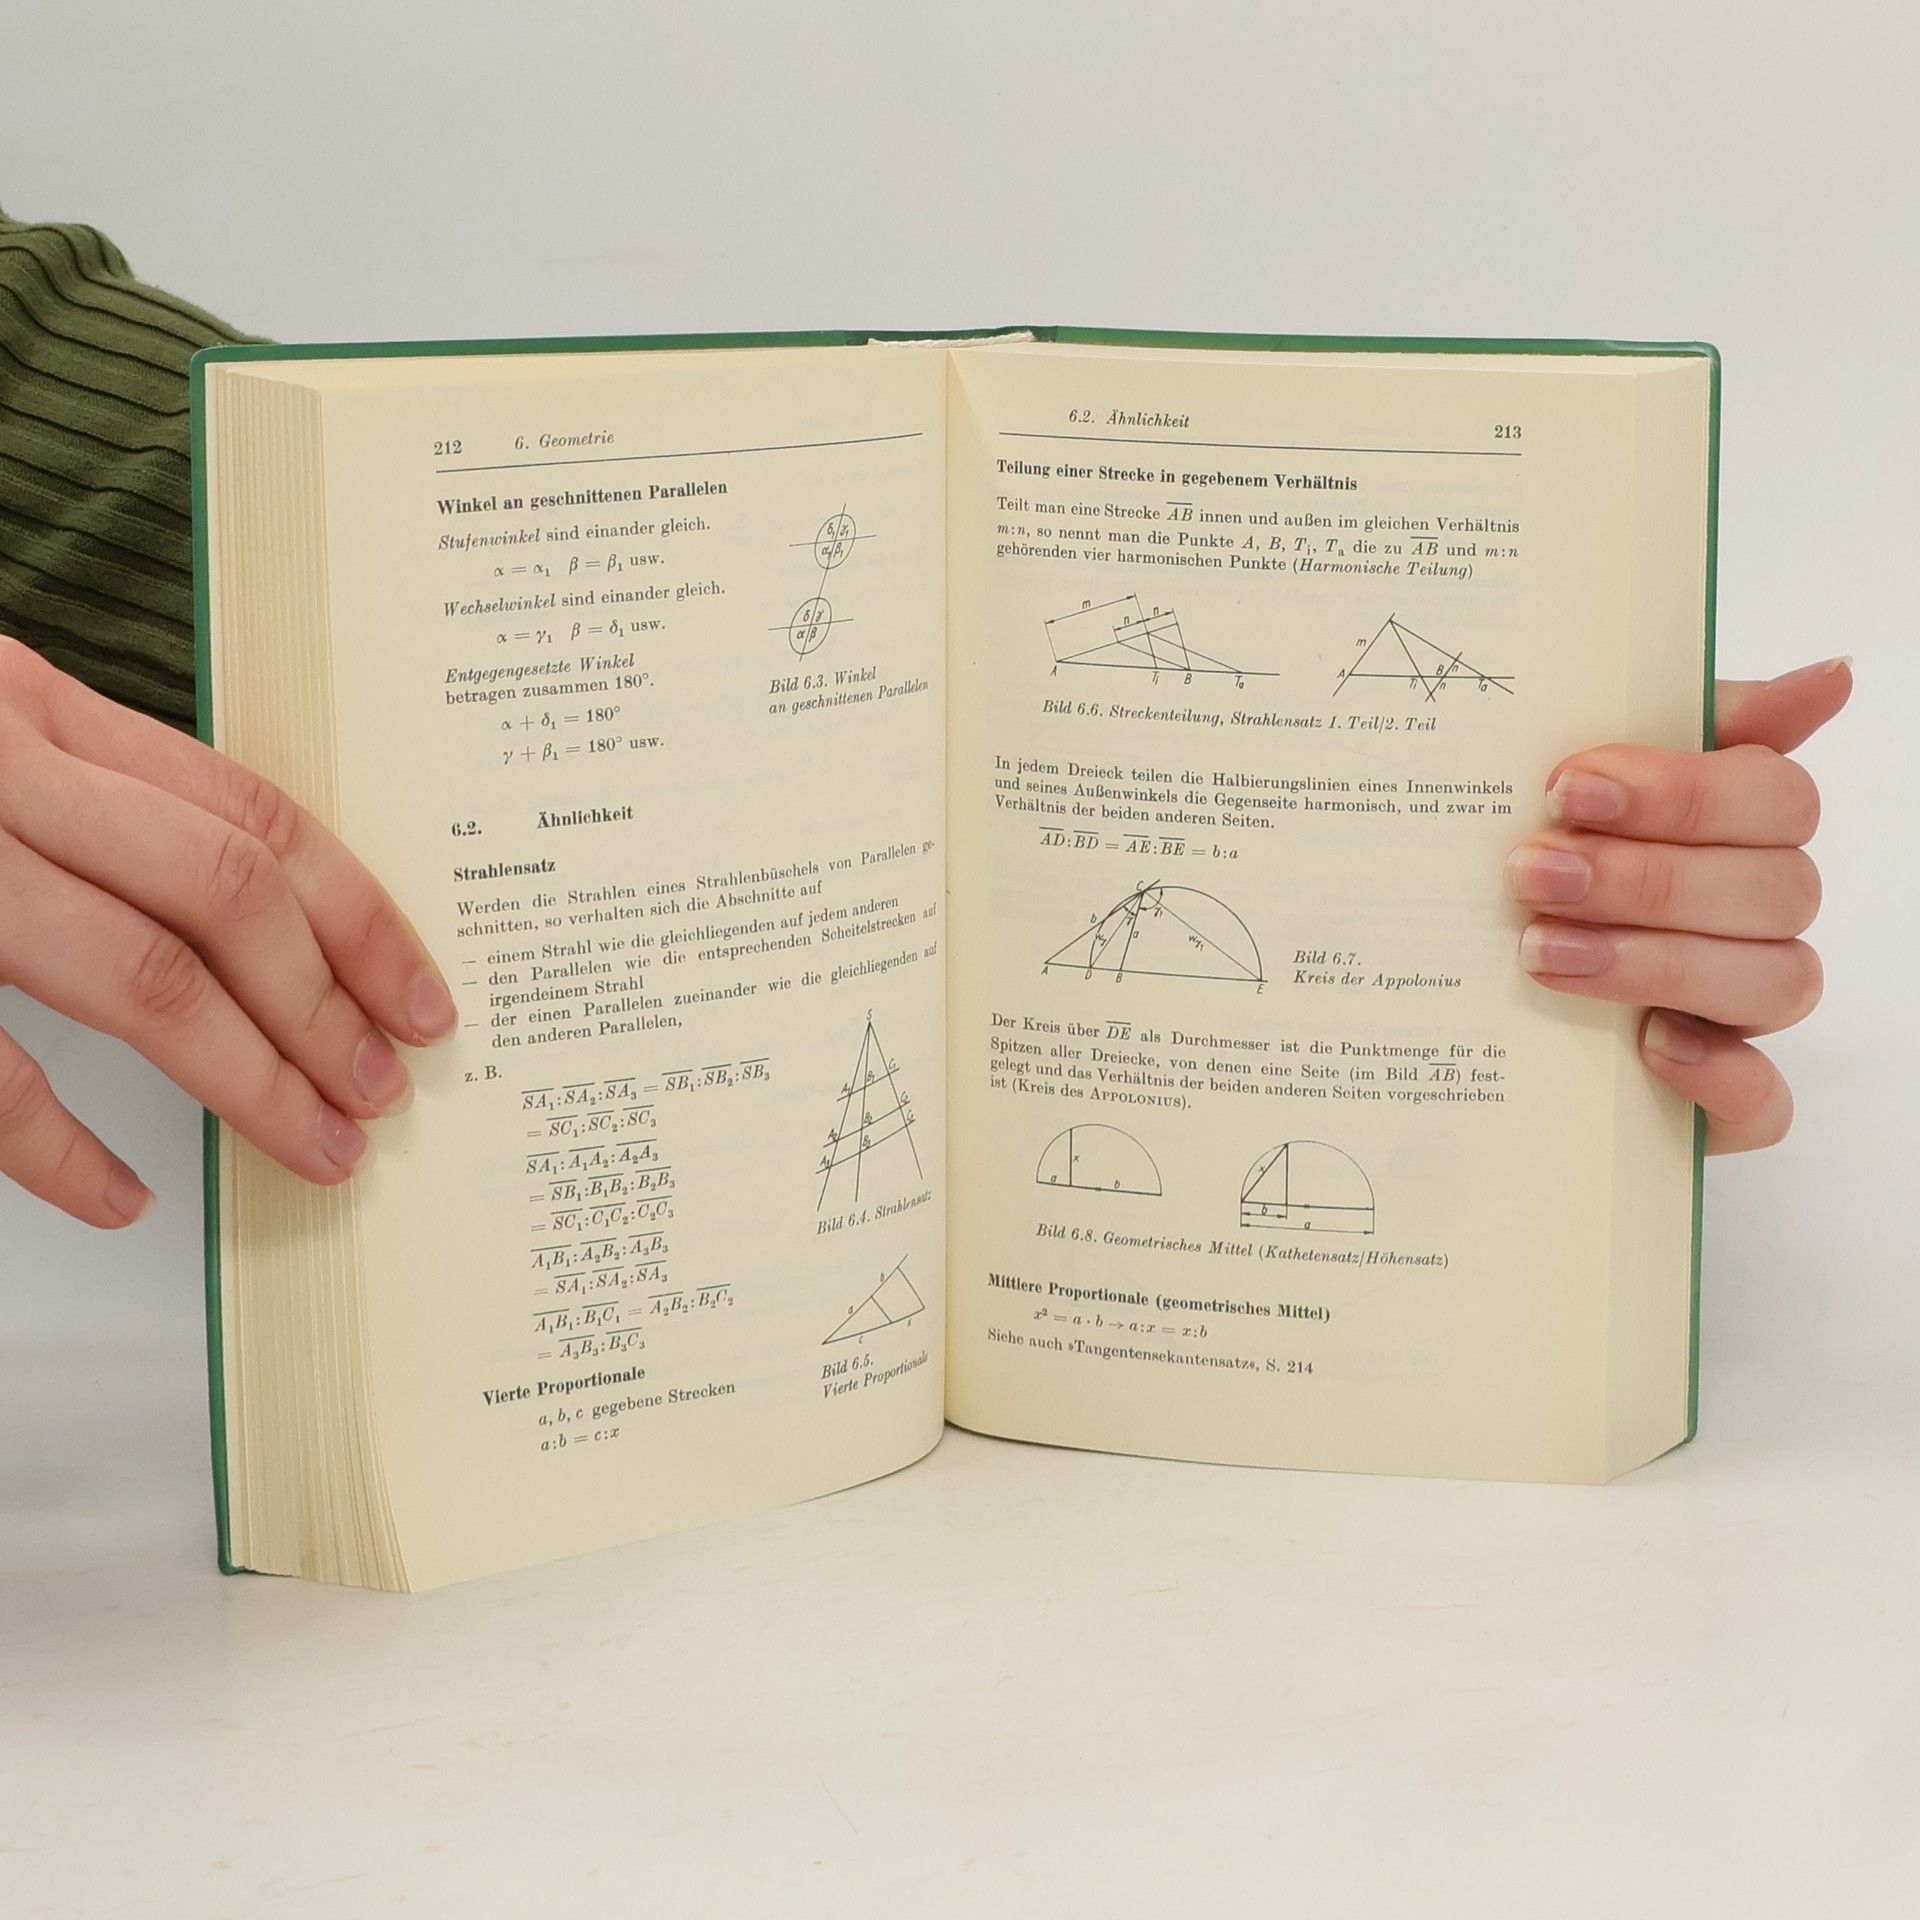 212 6. Geometrie
Winkel an geschnittenen Parallelen
Stufenwinkel sind einander gleich.
α = α₁ β = β₁ usw.
Wechselwinkel sind einander gleich.
α = γ₁ β = δ₁ usw.
Entgegengesetzte Winkel
betragen zusammen 180°.
α + δ₁ = 180°
γ + β₁ = 180° usw.
δ₁ γ₁
α₁ β₁
δ γ
α β
Bild 6.3. Winkel
an geschnittenen Parallelen
6.2. Ähnlichkeit
Strahlensatz
Werden die Strahlen eines Strahlenbüschels von Parallelen ge-
schnitten, so verhalten sich die Abschnitte auf
— einem Strahl wie die gleichliegenden auf jedem anderen
— den Parallelen wie die entsprechenden Scheitelstrecken auf
irgendeinem Strahl
— der einen Parallelen zueinander wie die gleichliegenden auf
den anderen Parallelen,
z. B.
S̅A̅₁:S̅A̅₂:S̅A̅₃ = S̅B̅₁:S̅B̅₂:S̅B̅₃
= S̅C̅₁:S̅C̅₂:S̅C̅₃
S̅A̅₁:A̅₁A̅₂:A̅₂A̅₃
= S̅B̅₁:B̅₁B̅₂:B̅₂B̅₃
= S̅C̅₁:C̅₁C̅₂:C̅₂C̅₃
A̅₁B̅₁:A̅₂B̅₂:A̅₃B̅₃
= S̅A̅₁:S̅A̅₂:S̅A̅₃
A̅₁B̅₁:B̅₁C̅₁ = A̅₂B̅₂:B̅₂C̅₂
= A̅₃B̅₃:B̅₃C̅₃
S
A₁ B₁ C₁
A₂ B₂ C₂
A₃ B₃
Bild 6.4. Strahlensatz
Vierte Proportionale
a, b, c gegebene Strecken
a:b = c:x
a b
c x
Bild 6.5.
Vierte Proportionale
6.2. Ähnlichkeit 213
Teilung einer Strecke in gegebenem Verhältnis
Teilt man eine Strecke A̅B̅ innen und außen im gleichen Verhältnis
m:n, so nennt man die Punkte A, B, Tᵢ, Tₐ die zu A̅B̅ und m:n
gehörenden vier harmonischen Punkte (Harmonische Teilung)
m n n
A Tᵢ B Tₐ
m
A Tᵢ B n n Tₐ
Bild 6.6. Streckenteilung, Strahlensatz 1. Teil/2. Teil
In jedem Dreieck teilen die Halbierungslinien eines Innenwinkels
und seines Außenwinkels die Gegenseite harmonisch, und zwar im
Verhältnis der beiden anderen Seiten.
A̅D̅:B̅D̅ = A̅E̅:B̅E̅ = b:a
C
b γ γ₁
a
A D B E
Bild 6.7.
Kreis der Appolonius
Der Kreis über D̅E̅ als Durchmesser ist die Punktmenge für die
Spitzen aller Dreiecke, von denen eine Seite (im Bild A̅B̅) fest-
gelegt und das Verhältnis der beiden anderen Seiten vorgeschrieben
ist (Kreis des APPOLONIUS).
x
a b
x
b
a
Bild 6.8. Geometrisches Mittel (Kathetensatz/Höhensatz)
Mittlere Proportionale (geometrisches Mittel)
x² = a · b → a:x = x:b
Siehe auch »Tangentensekantensatz«, S. 214